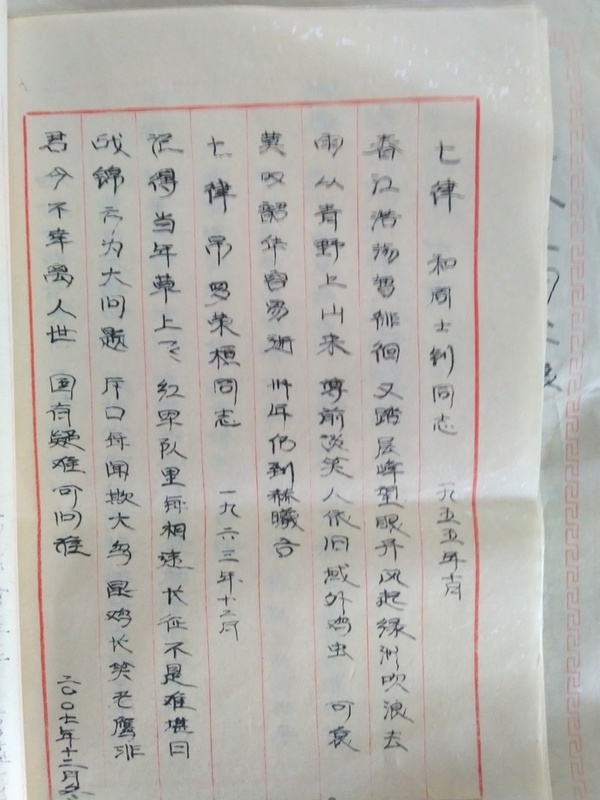 七律 和周士钊同志 一九五五年十月
春江浩荡暂徘徊 又踏层峰望眼开 风起绿洲吹浪去
雨从青野上山来 尊前谈笑人依旧 域外鸡虫 可哀
莫叹韶华容易逝 卅年仍到赫曦台
七律 吊罗荣桓同志 一九六三年十二月
记得当年草上飞 红军队里每相违 长征不是难堪日
战锦方为大问题 斥㔾每闻欺大鸟 昆鸡长笑老鹰非
君今不幸离人世 国有疑难可问谁
二〇〇七年十二月